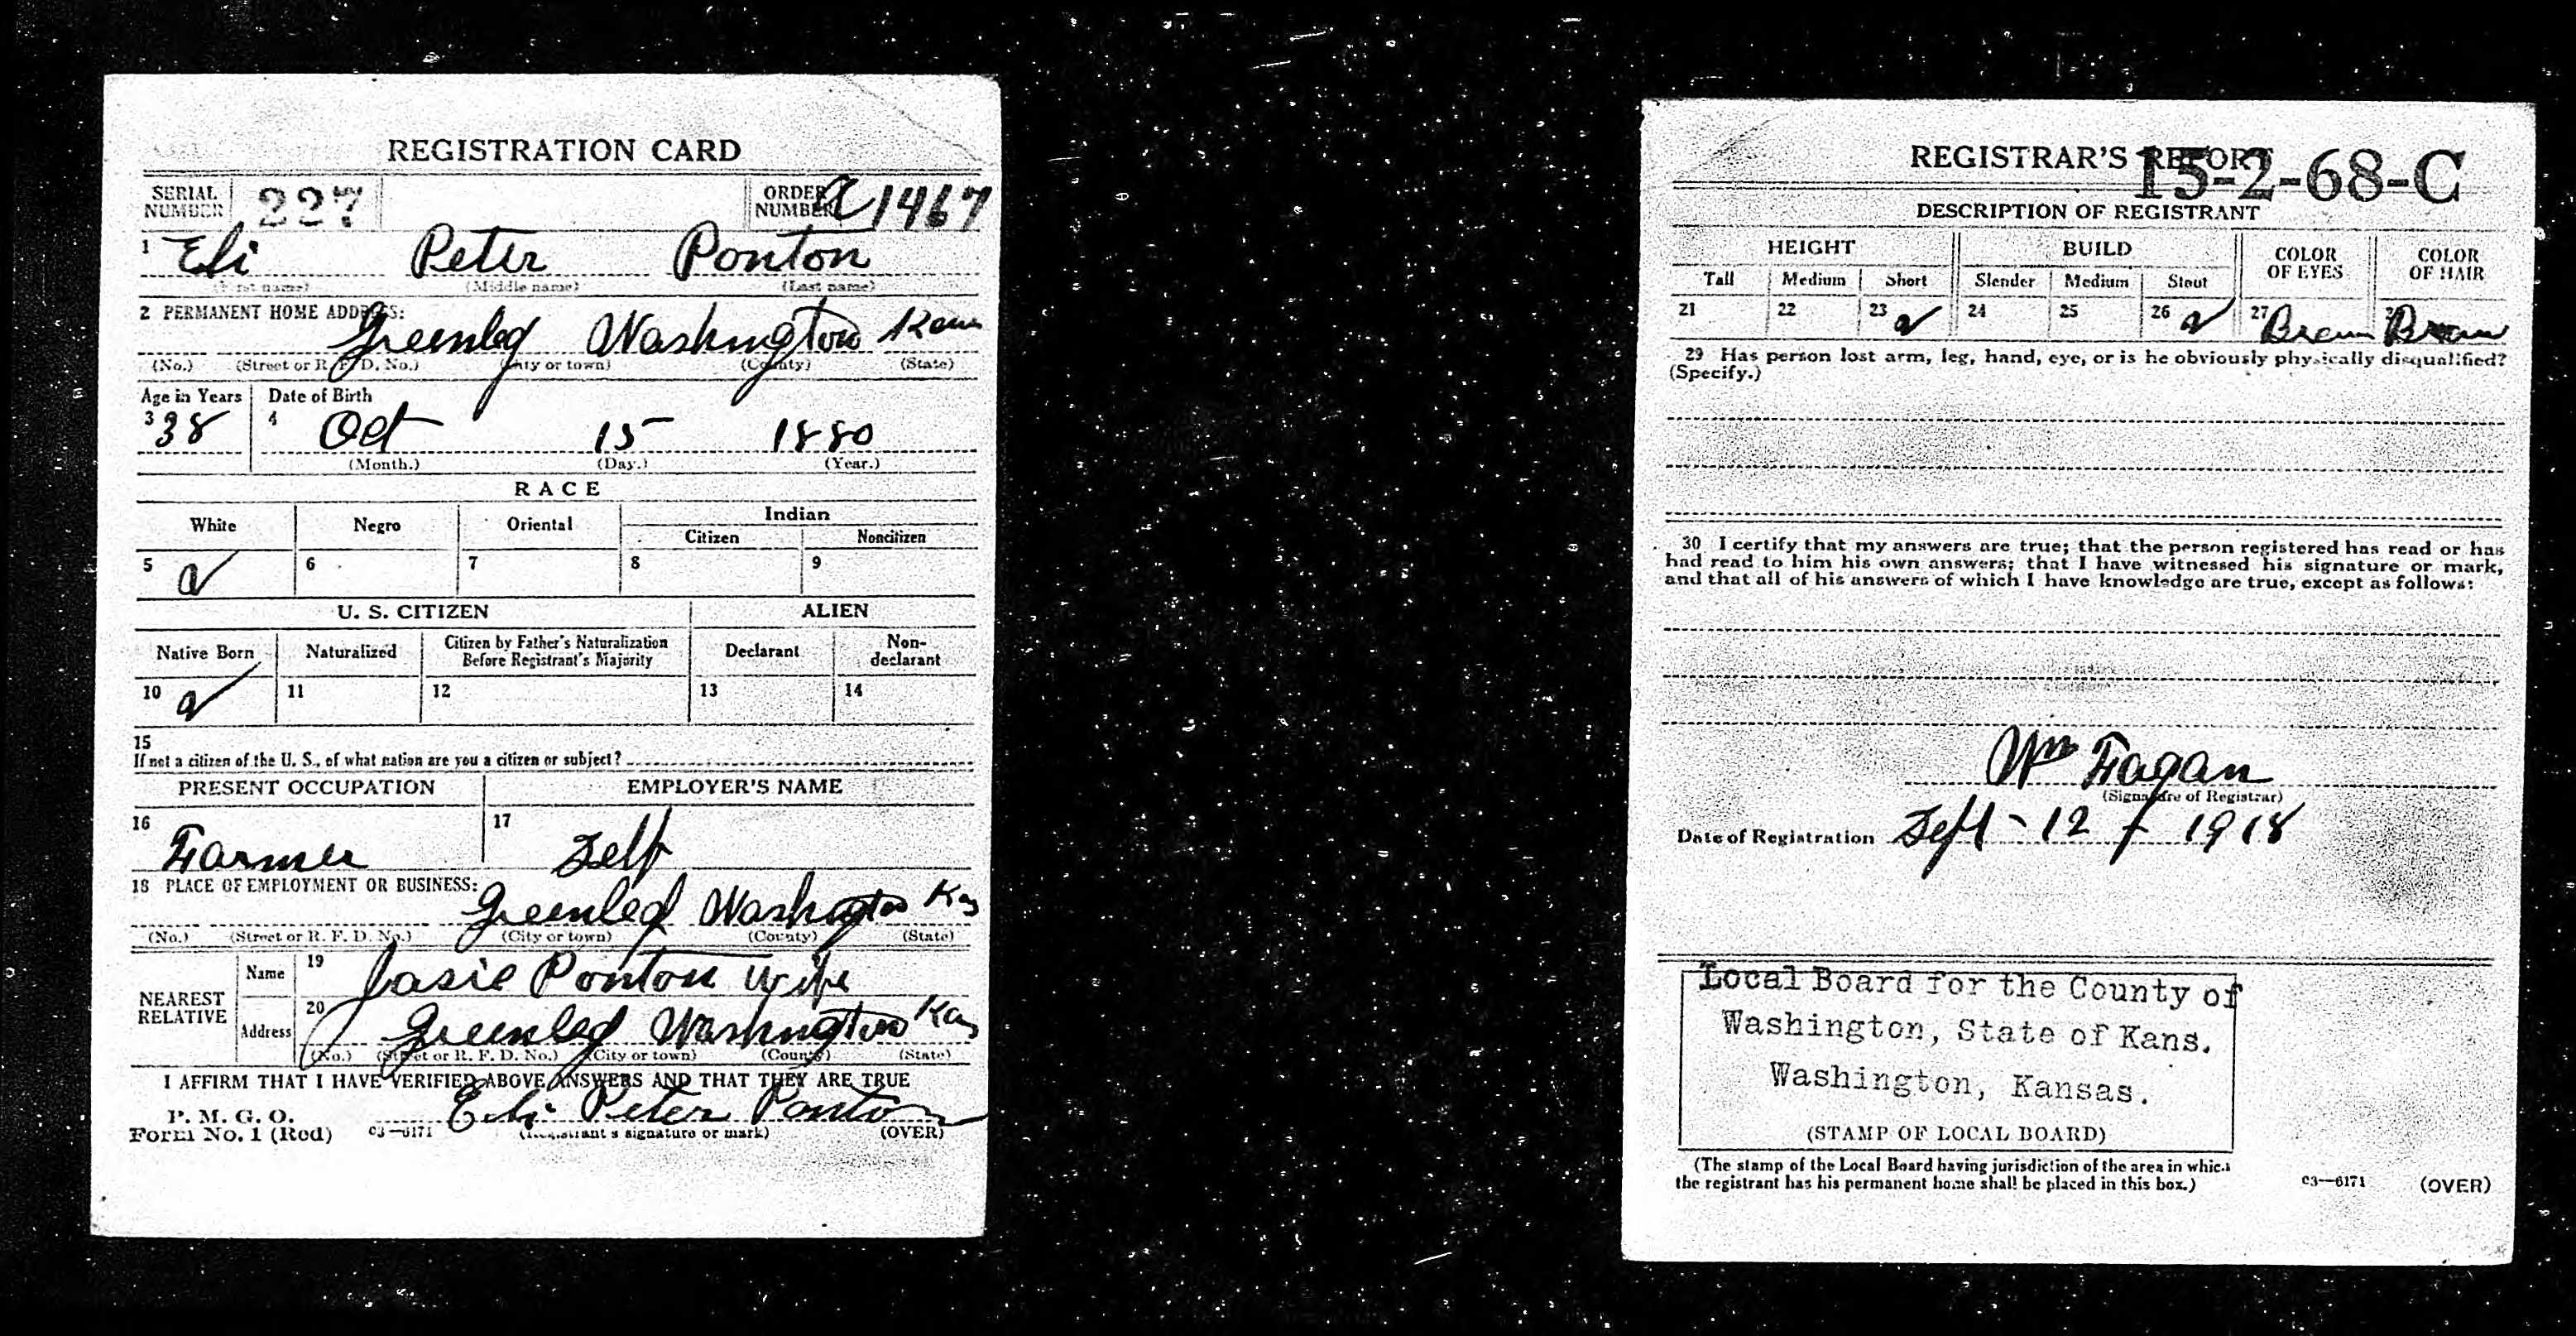 REGISTRATION CARD
SERIAL NUMBER 227 ORDER NUMBER A 1467
1 Eli Peter Ponton
(First name) (Middle name) (Last name)
2 PERMANENT HOME ADDRESS:
Greenleaf Washington Kans
(No.) (Street or R. F. D. No.) (City or town) (County) (State)
Age in Years Date of Birth
3 38 4 Oct 15 1880
(Month.) (Day.) (Year.)
RACE
White Negro Oriental Indian
Citizen Noncitizen
5 6 7 8 9
U. S. CITIZEN ALIEN
Native Born Naturalized Citizen by Father's Naturalization Before Registrant's Majority Declarant Non-declarant
10 11 12 13 14
15
If not a citizen of the U. S., of what nation are you a citizen or subject?
PRESENT OCCUPATION EMPLOYER'S NAME
16 Farmer 17 Self
18 PLACE OF EMPLOYMENT OR BUSINESS:
Greenleaf Washington Kas
(No.) (Street or R. F. D. No.) (City or town) (County) (State)
NEAREST RELATIVE
Name 19 Josie Ponton wife
Address 20 Greenleaf Washington Kas
(No.) (Street or R. F. D. No.) (City or town) (County) (State)
I AFFIRM THAT I HAVE VERIFIED ABOVE ANSWERS AND THAT THEY ARE TRUE
P. M. G. O.
Form No. 1 (Red) 03—6171 Eli Peter Ponton
(Registrant's signature or mark) (OVER)
REGISTRAR'S REPORT
15-2-68-C
DESCRIPTION OF REGISTRANT
HEIGHT BUILD COLOR OF EYES COLOR OF HAIR
Tall Medium Short Slender Medium Stout
21 22 23 24 25 26 27 Brown Brown
29 Has person lost arm, leg, hand, eye, or is he obviously physically disqualified?
(Specify.)
30 I certify that my answers are true; that the person registered has read or has
had read to him his own answers; that I have witnessed his signature or mark,
and that all of his answers of which I have knowledge are true, except as follows:
Wm Fagan
(Signature of Registrar)
Date of Registration Sept - 12 - 1918
Local Board for the County of
Washington, State of Kans.
Washington, Kansas.
(STAMP OF LOCAL BOARD)
(The stamp of the Local Board having jurisdiction of the area in which
the registrant has his permanent home shall be placed in this box.)
03—6171 (OVER)